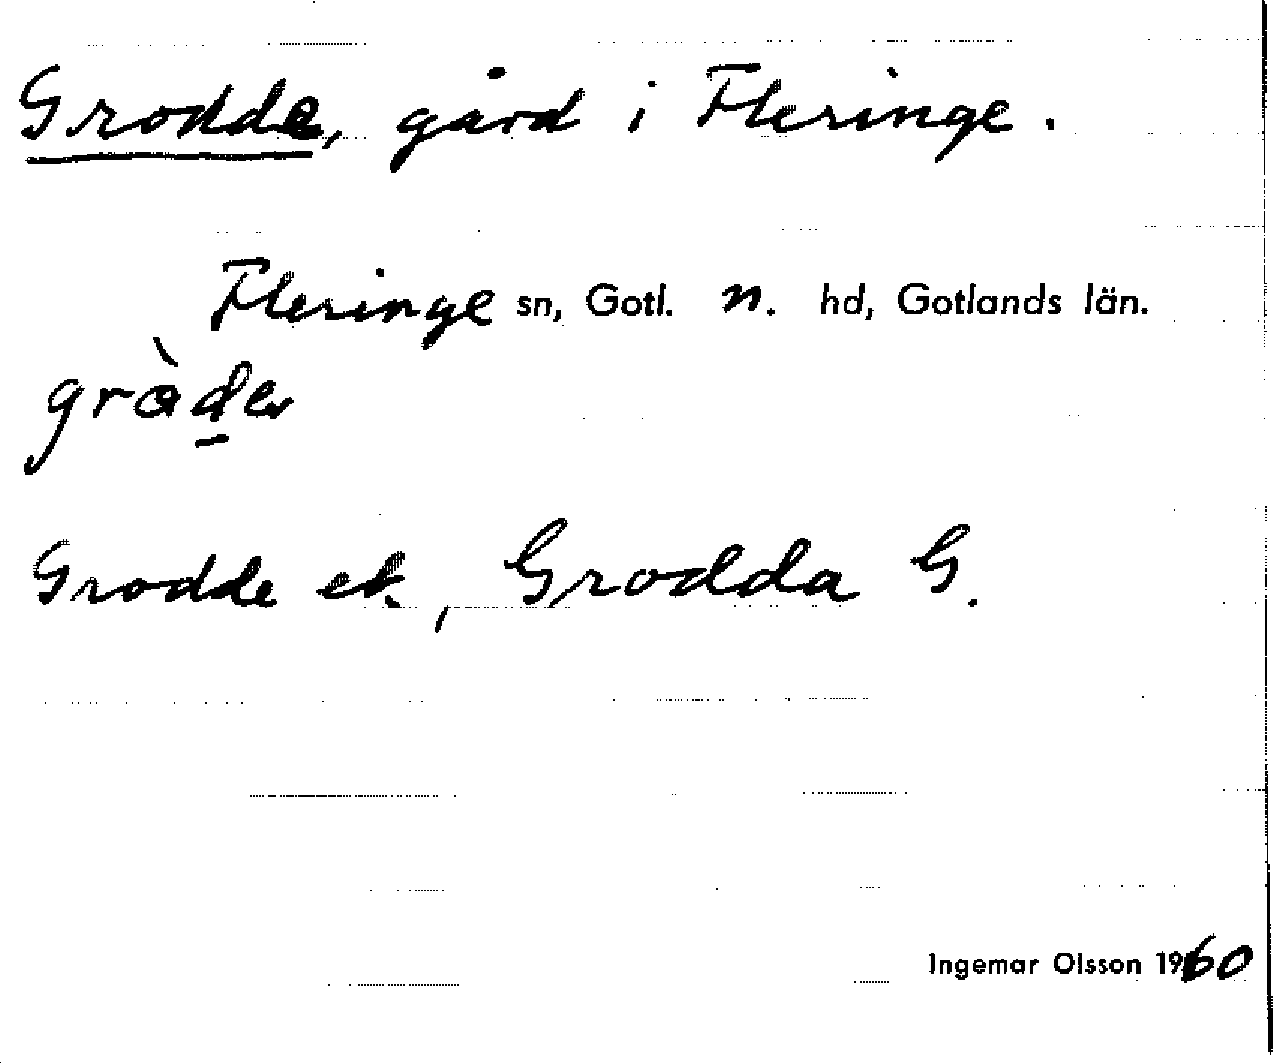 Grodde, gård i Fleringe.
Fleringe sn, Gotl. n. hd, Gotlands län.
gràde
Grodde ek., Grodda G.
Ingemar Olsson 1960